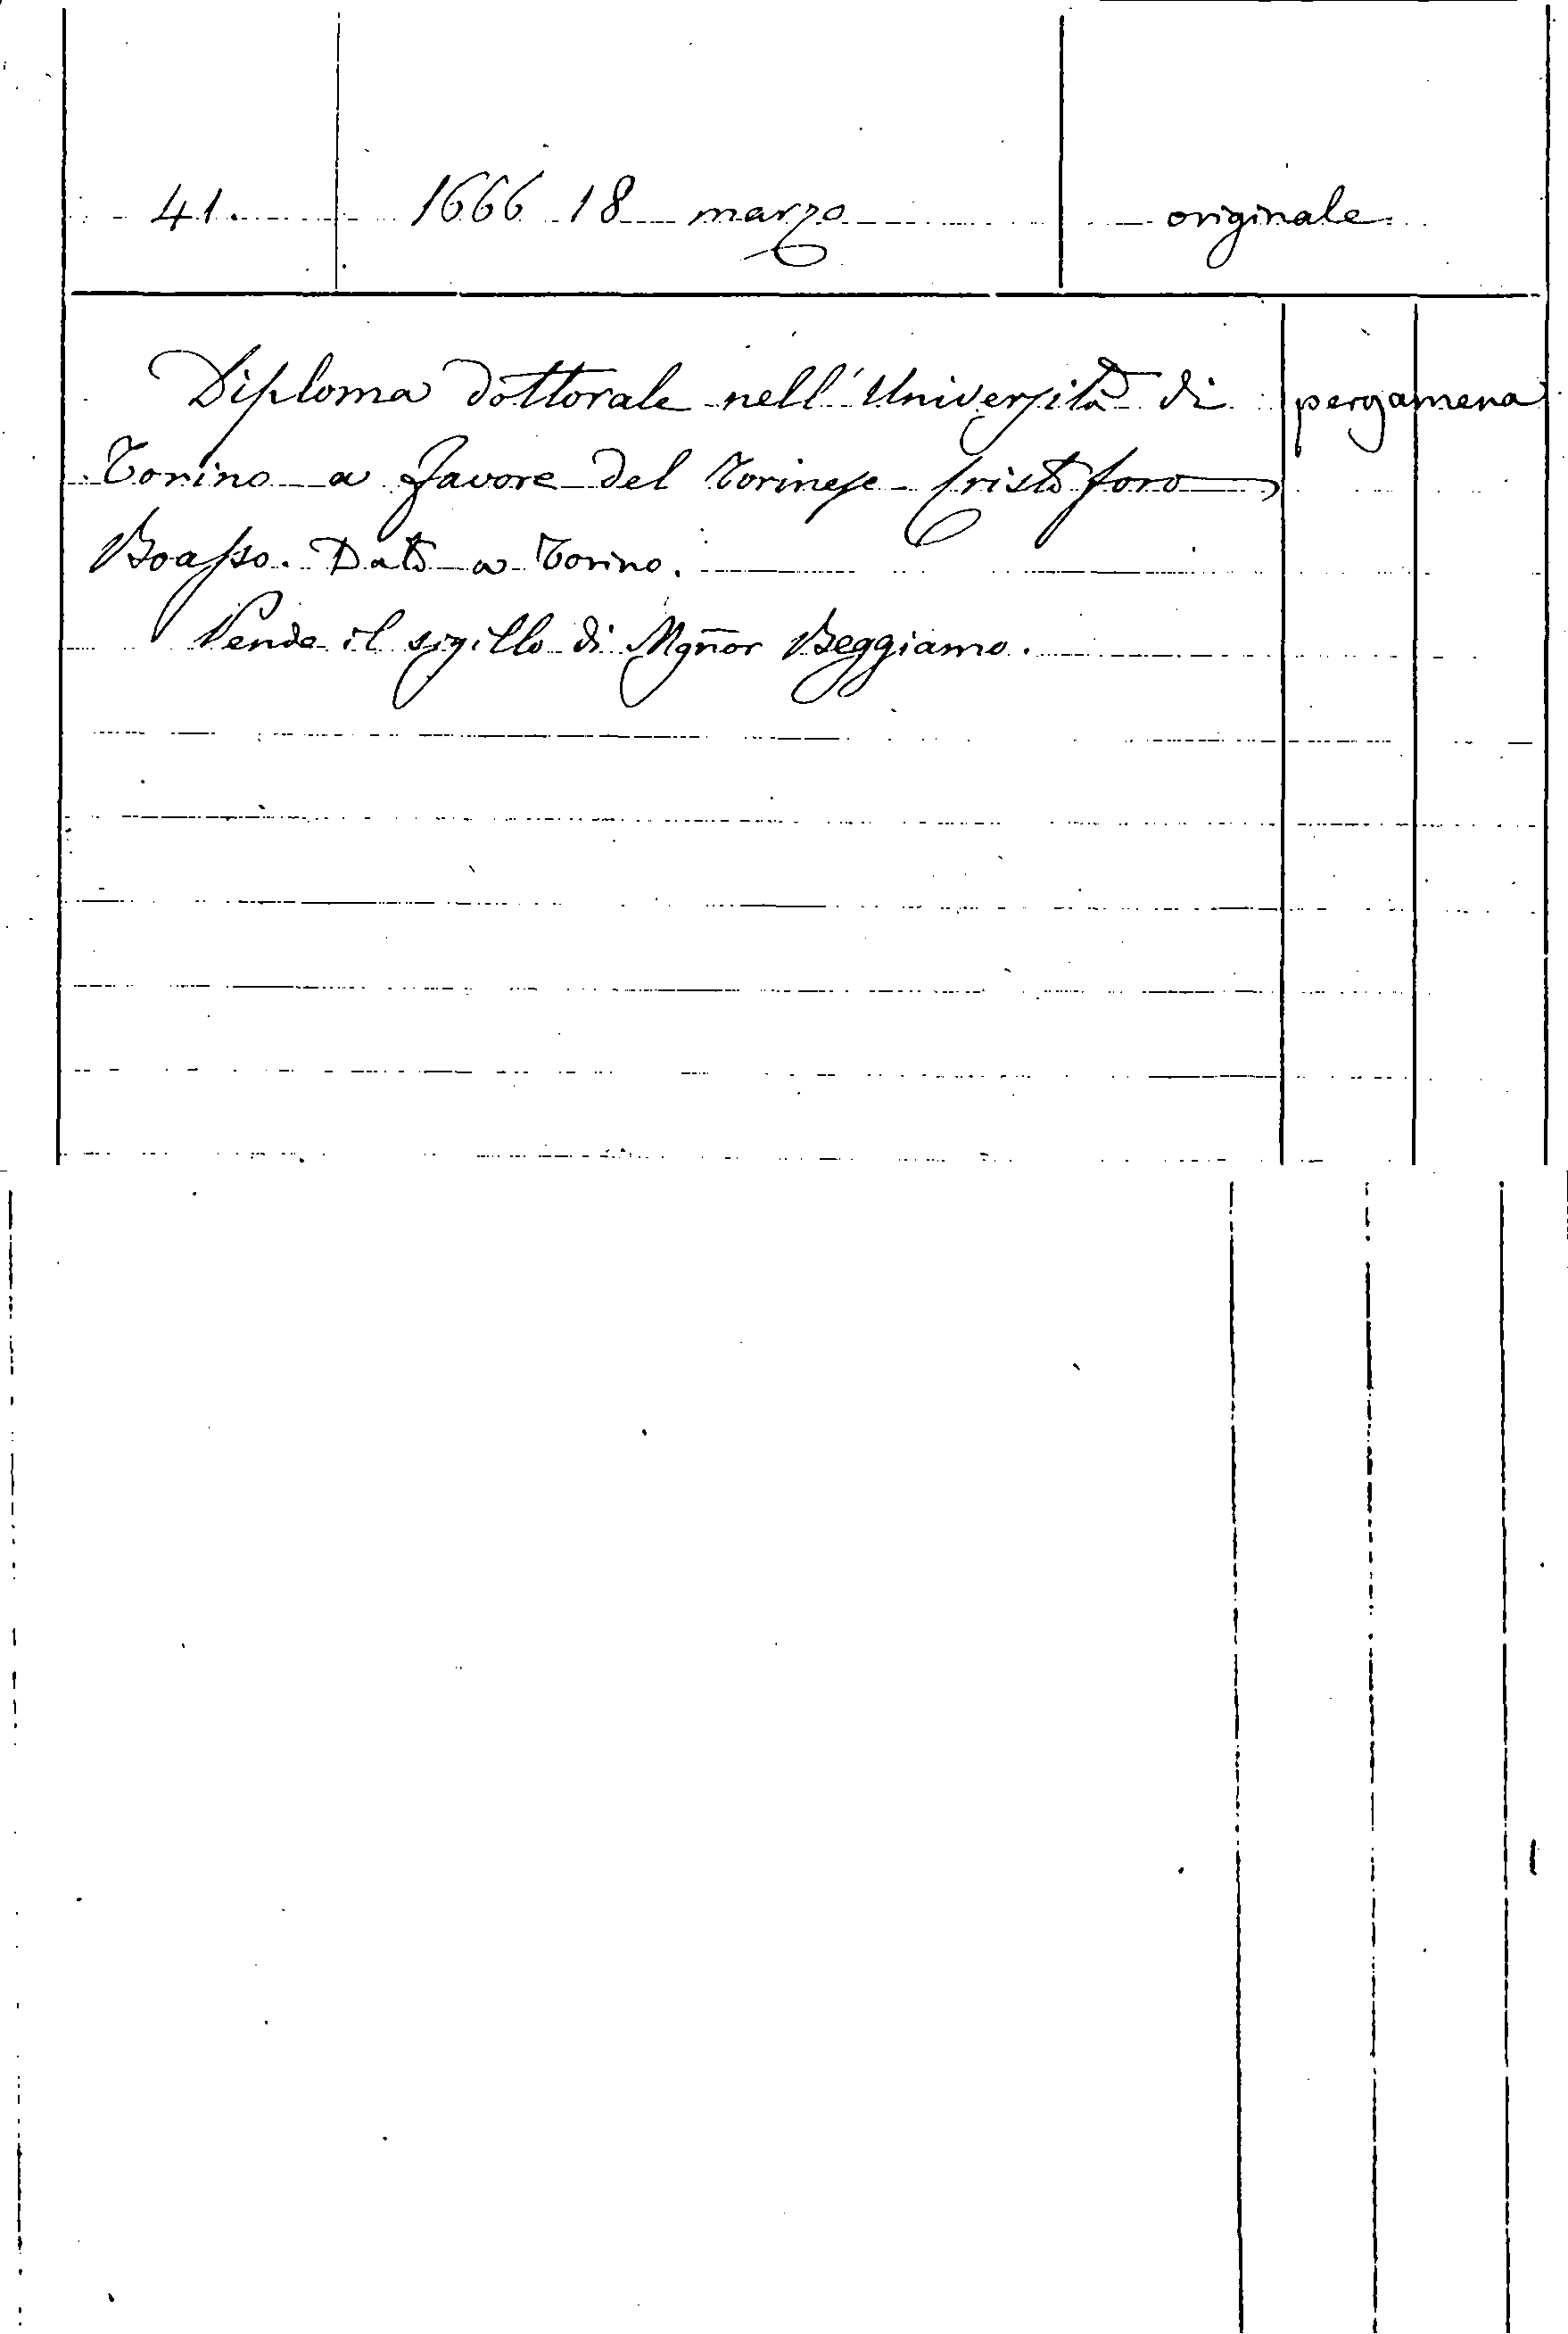 41. 1666 18 marzo originale
Diploma dottorale nell'Università di pergamena
Torino a favore del torinese Cristoforo
Boasso. Dato a Torino.
Pende il sigillo di Mgn̄or Beggiamo.